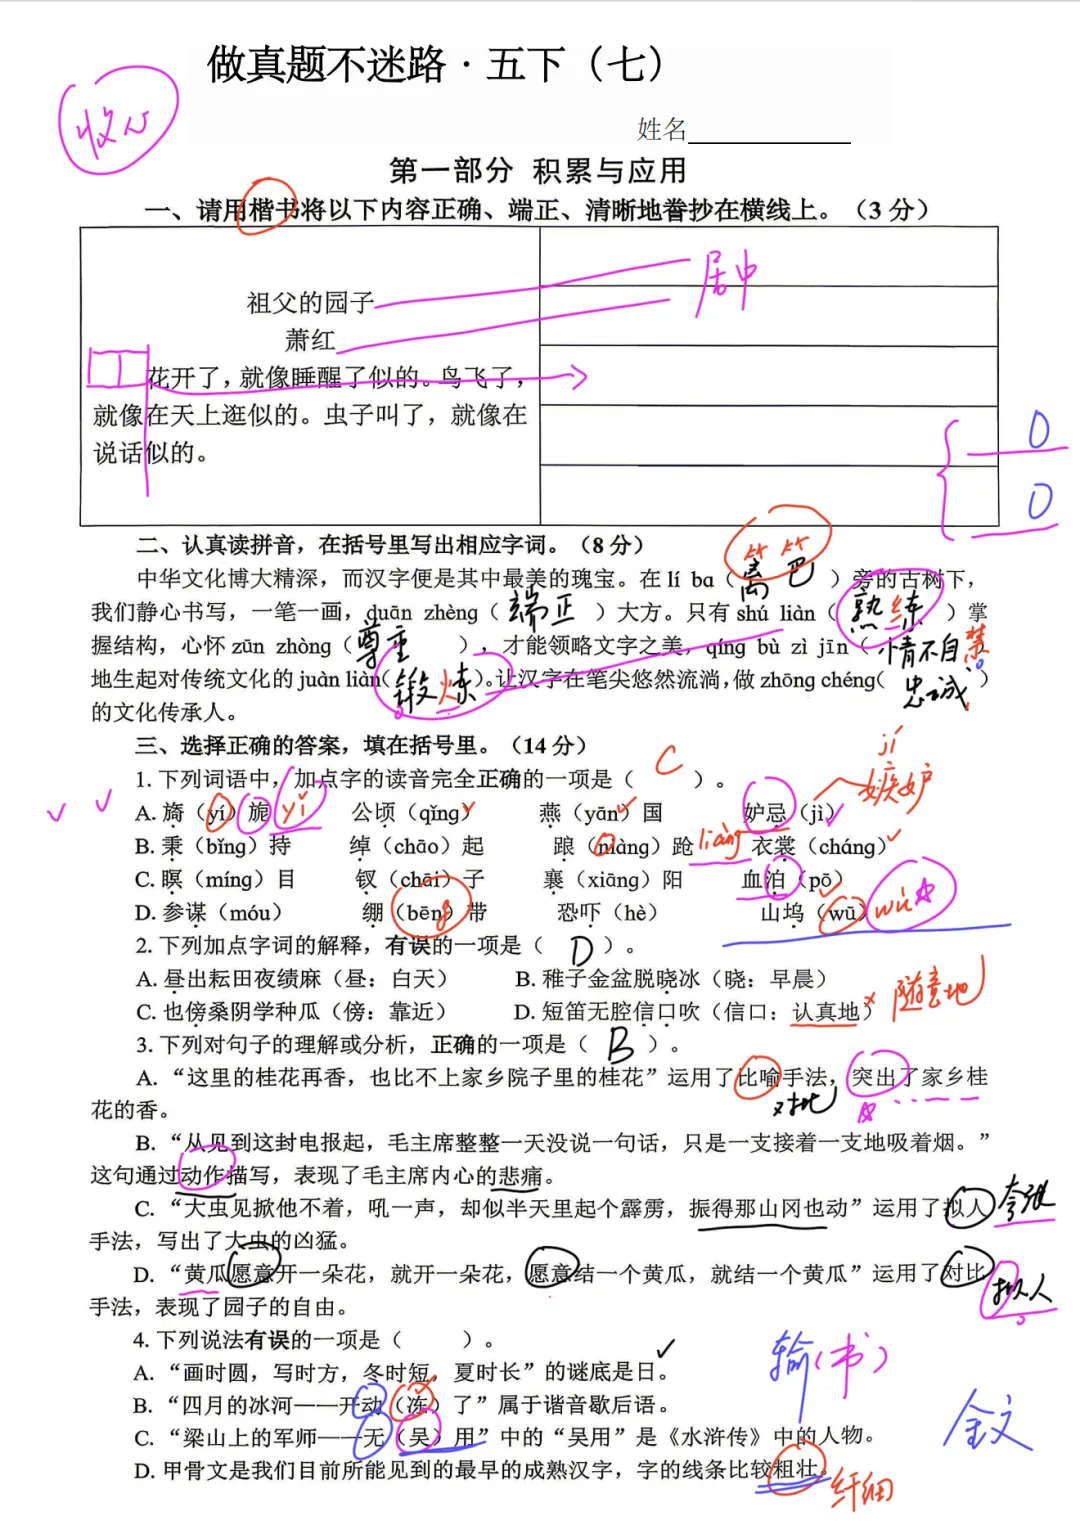 做真题不迷路·五下（七）
收心
姓名
第一部分 积累与应用
一、请用楷书将以下内容正确、端正、清晰地誊抄在横线上。（3分）
祖父的园子
萧红
居中
花开了，就像睡醒了似的。鸟飞了，
就像在天上逛似的。虫子叫了，就像在
说话似的。
0
0
二、认真读拼音，在括号里写出相应字词。（8分）
中华文化博大精深，而汉字便是其中最美的瑰宝。在 lí ba（篱笆）旁的古树下，
我们静心书写，一笔一画，duān zhèng（端正）大方。只有 shú liàn（熟练）掌
握结构，心怀 zūn zhòng（尊重），才能领略文字之美，qíng bù zì jīn（情不自禁
地生起对传统文化的 juàn liàn（锻炼）。让汉字在笔尖悠然流淌，做 zhōng chéng（忠诚）
的文化传承人。
三、选择正确的答案，填在括号里。（14分）
1. 下列词语中，加点字的读音完全正确的一项是（ C ）。
jí
嫉妒
A. 旖（yí）旎 yǐ 公顷（qǐng） 燕（yān）国 妒忌（jì）
B. 秉（bǐng）持 绰（chāo）起 踉（niàng）跄 liàng 衣裳（cháng）
C. 瞑（míng）目 钗（chāi）子 襄（xiāng）阳 血泊（pō）
D. 参谋（móu） 绷（bēng）带 恐吓（hè） 山坞（wū） wù
2. 下列加点字词的解释，有误的一项是（ D ）。
A. 昼出耘田夜绩麻（昼：白天） B. 稚子金盆脱晓冰（晓：早晨）
C. 也傍桑阴学种瓜（傍：靠近） D. 短笛无腔信口吹（信口：认真地） 随意地
3. 下列对句子的理解或分析，正确的一项是（ B ）。
A. “这里的桂花再香，也比不上家乡院子里的桂花”运用了比喻手法，突出了家乡桂
花的香。
对比
B. “从见到这封电报起，毛主席整整一天没说一句话，只是一支接着一支地吸着烟。”
这句通过动作描写，表现了毛主席内心的悲痛。
C. “大虫见掀他不着，吼一声，却似半天里起个霹雳，振得那山冈也动”运用了拟人 夸张
手法，写出了大虫的凶猛。
D. “黄瓜愿意开一朵花，就开一朵花，愿意结一个黄瓜，就结一个黄瓜”运用了对比
手法，表现了园子的自由。
拟人
4. 下列说法有误的一项是（ ）。
A. “画时圆，写时方，冬时短，夏时长”的谜底是日。
输（书）
B. “四月的冰河——开动（冻）了”属于谐音歇后语。
C. “梁山上的军师——无（吴）用”中的“吴用”是《水浒传》中的人物。
金文
D. 甲骨文是我们目前所能见到的最早的成熟汉字，字的线条比较粗壮。
纤细